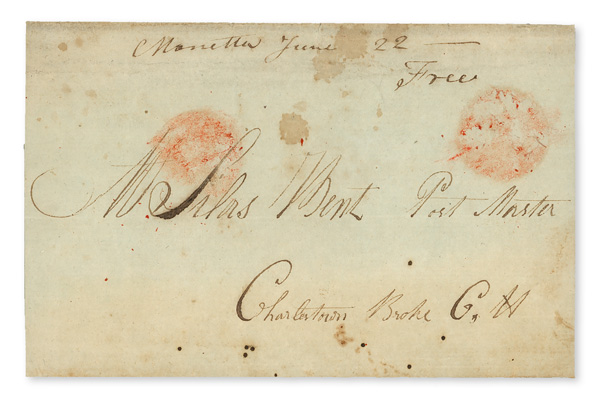 Marietta June 22
Free
Mr. Silas Bent Post Master
Charlestown Broke C. H